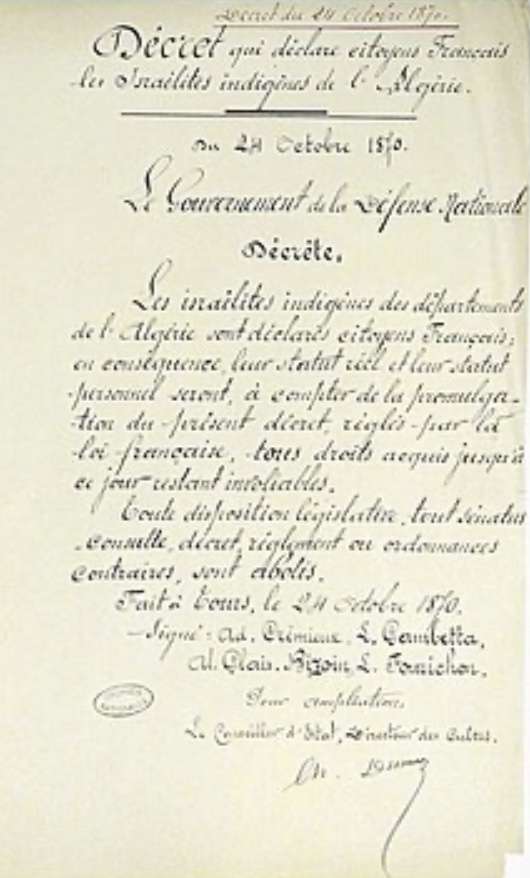 Décret du 24 Octobre 1870.
Décret qui déclare citoyens Français
les Israélites indigènes de l'Algérie.
Du 24 Octobre 1870.
Le Gouvernement de la Défense Nationale
Décrète.
Les israélites indigènes des départements
de l'Algérie sont déclarés citoyens Français;
en conséquence, leur statut réel et leur statut
personnel seront, à compter de la promulga-
tion du présent décret, réglés par la
loi française, tous droits acquis jusqu'à
ce jour restant involiables.
Toute disposition législative, tout sénatus
-consulte, décret, règlement ou ordonnances
contraires, sont abolis.
Fait à Tours, le 24 Octobre 1870.
Signé: Ad. Crémieux, L. Gambetta,
Al. Glais-Bizoin, L. Fourichon.
Pour ampliation,
Le Conseiller d'Etat, Directeur des Cultes.